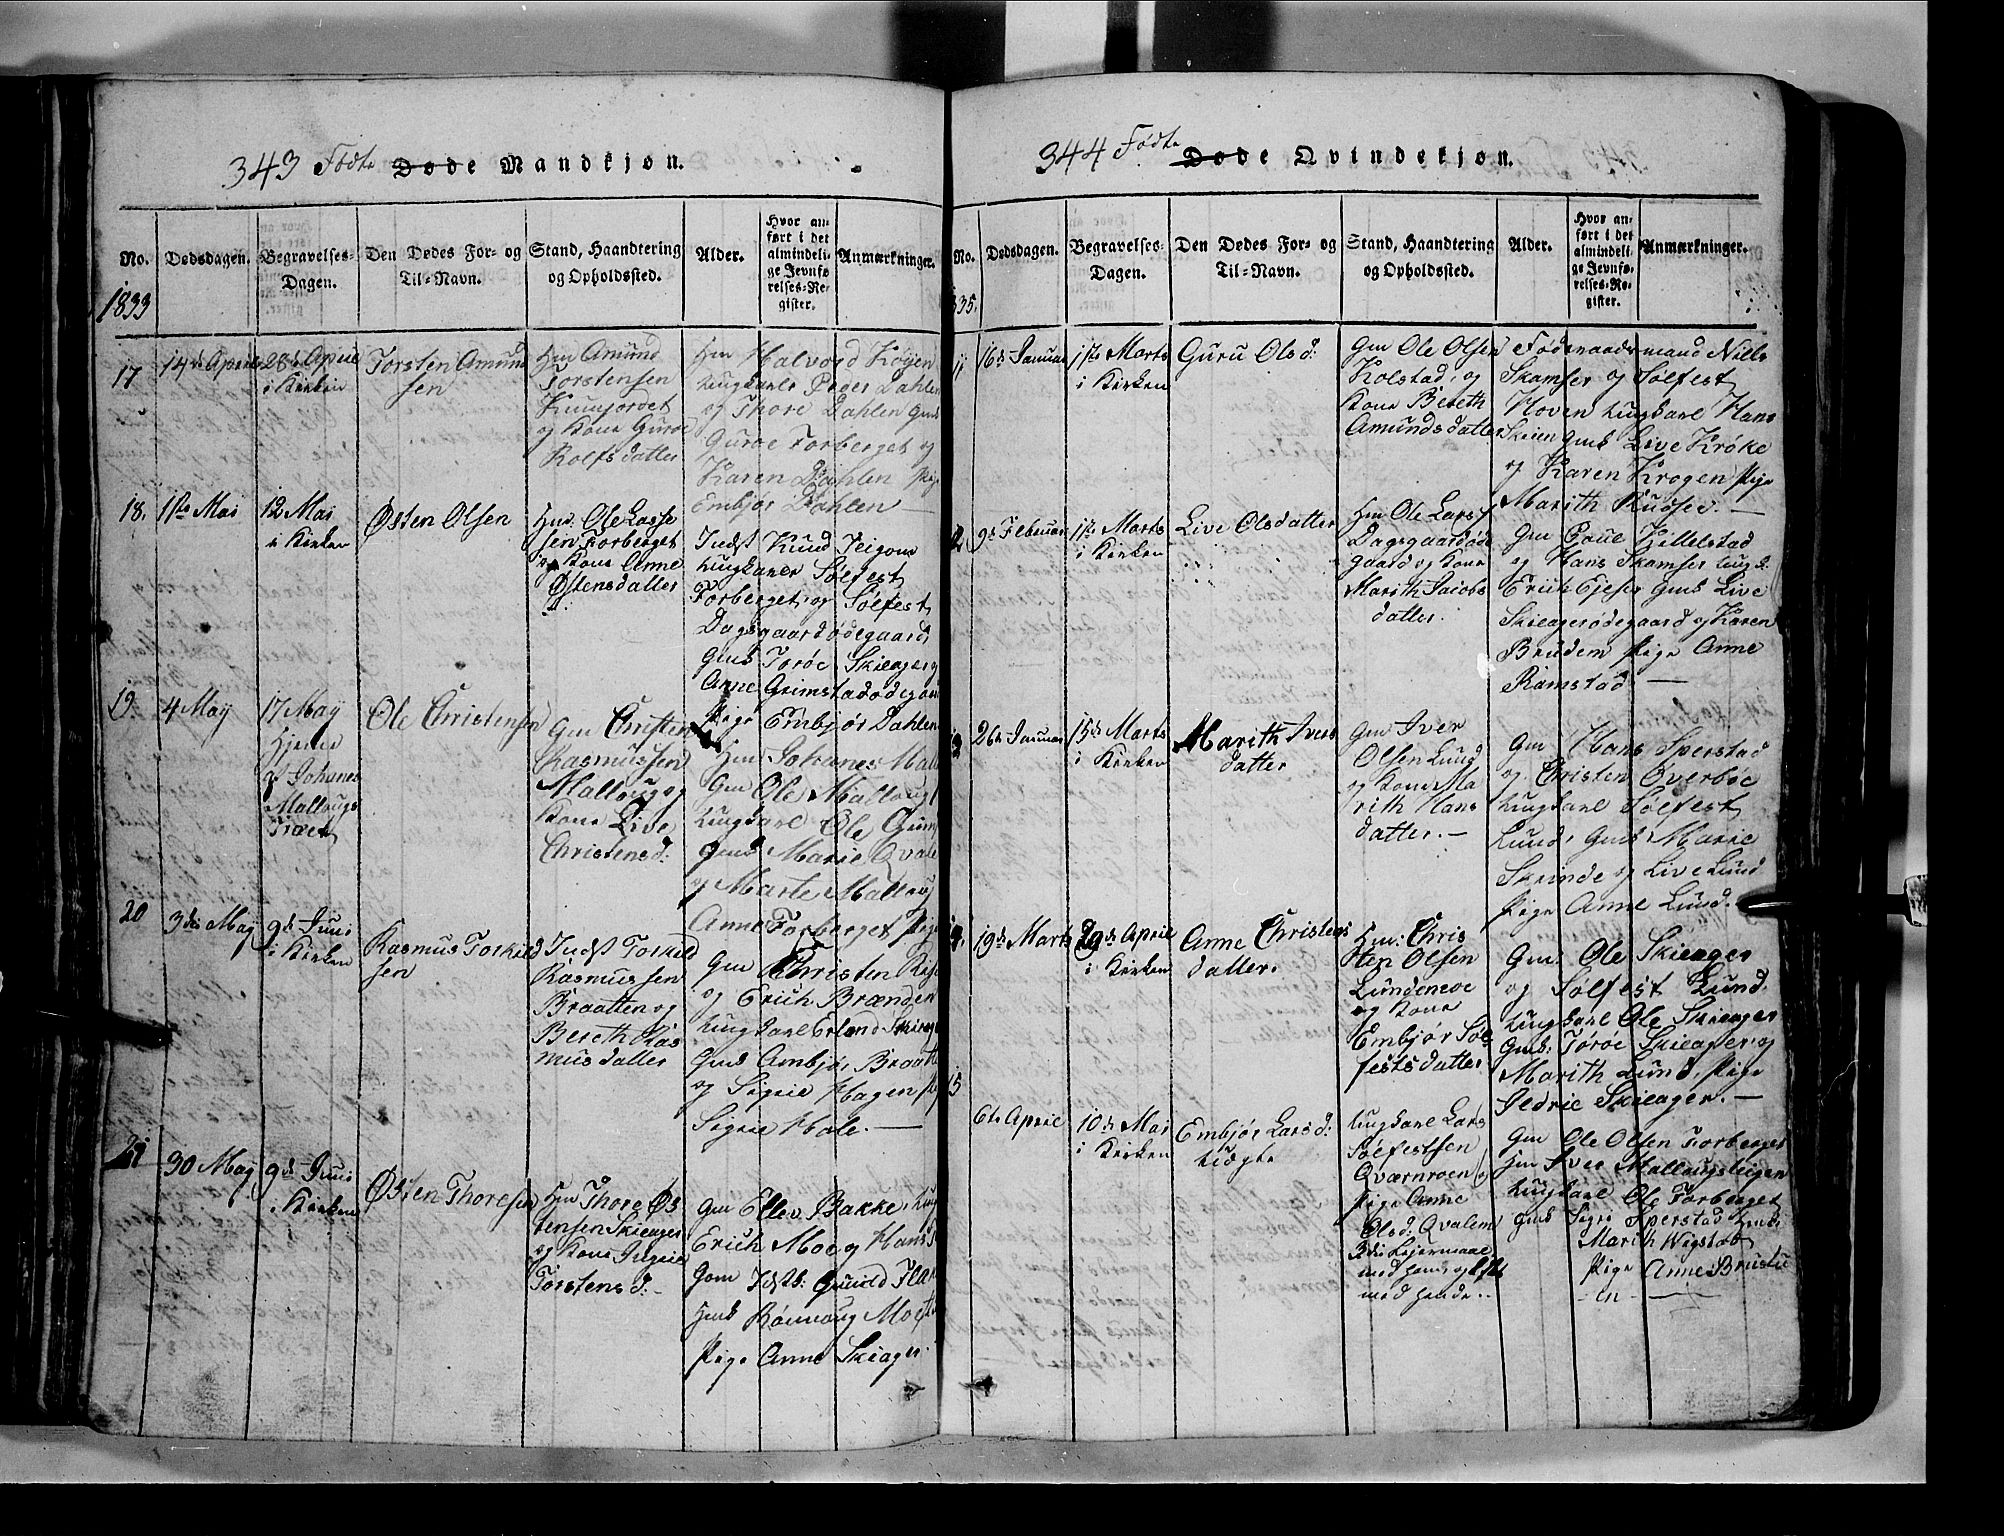 343 Födte Døde Mandkjøn.
No.
Dødsdagen.
Begravelses-
Dagen.
Den Dødes For- og
Til-Navn.
Stand, Haandtering
og Opholdssted.
Alder.
Hvor an-
ført i det
almindeli-
ge Jevnfø-
relses-Re-
gister.
Anmærkninger.
1833
17
14de April
28de April
i Kirken
Torsten Amund
sen
Hm Amund
Torstensen
og Kone Guroe
Rolfsdatter
Hm Halvord
Ungkarle Peder Dahlen
og Thore Dahlen Gmds
Guroe Forberget og
Karen Dahlen Pige
Embjør Dahlen —
18.
1ste Mai
12 Mai
i Kirken
Østen Olsen
Hmd. Ole Lasse
sen Forberget
og Kone Anne
Østensdatter
Indst Knud Teigom
Ungkarle Sølfest
Forberget, og Sølfest
Dagsgaardødegaard,
Gmds Toröe Skieager og
Anne Grimstadødegaard
Pige Embjør Dahlen
19.
4 Maÿ
17 Maÿ
Hjemme
Ole Christensen
Gm Christen
Rasmussen
Malloug og
Kone Live
Christensd:
Hm Johanes
Gm Ole Malloug
Ungkarl Ole
Gmds Marie Qvale
og Marte Malloug
Anne Forberget Pige
20
3die Maÿ
9de Juni
i Kirken
Rasmus Torkild
sen
Indst Torkild
Rasmussen
Braatten og
Bereth Ras
musdatter
Gm Christen
og Erich Brænden
Ungkarl Erland
Gmds Ambjør Braatt
og Sigrie Hagen
Sigrie Hole. —
21
30 Maÿ
9de Juni
i Kirken
Østen Thoresen
Hm Thore Øs
tensen Skieager
og Kone Ingrie
Torstensd: -
Gm Ellev Bakke,
Erich Moe og Hans
Hmds Rönnoug Moe
Pige Anne Skiager.
344 Födte Døde Qvindekjøn.
No.
Dødsdagen.
Begravelses-
Dagen.
Den Dødes For- og
Til-Navn.
Stand, Haandtering
og Opholdssted.
Alder.
Hvor an-
ført i det
almindeli-
ge Jevnfø-
relses-Re-
gister.
Anmærkninger.
35.
11
16de Januar
1ste Marts
i Kirken
Guru Olsd:
Gm Ole Olsen
Kolstad, og
Kone Bereth
Amundsdatter
Niels
Skamser og Sølfest
Hoven Ungkarl Hans
Skeien Gmds Live Kröke
og Karen Krogen Pige
Marith
2
9de Februar
1ste Marts
i Kirken
Live Olsdatter
Hm Ole Lars
Dagsgaardøde
gaard og Kone
Marith Jacobs
datter.
Gm Poul Killelstad
og Hans Skamser
Erich Gmds Live
Skieagerødegaard og Karen
Brudem Pige Anne
Ramstad —
26de Januar
15de Marts
i Kirken
Marith Ivers
datter
Gm Iver
Olsen Lund
og Kone Ma
rith Hans
datter. —
Gm Hans Sperstad
og Christen Øverböe
Ungkarl Sölfest
Lund, Gmds Marie
Skrinde og Live Lund
Pige Anne Lund. —
19de Marts
29de April
i Kirken
Anne Christens
datter.
Hm: Chris
ten Olsen
Lundeneoe
og Kone
Embjør Söl
festsdatter
Gm: Ole Skieager
og Sølfest Lund.
Ungkarl Ole Skieager
Gmds: Töröe Skieager, og
Marith Lund, Pige
Ildrie Skieager. —
15
6te April
10de Mai
i Kirken
Embjør Larsd:
Uægte
Ungkarl Lars
Sølfestsen
Qværnroen
Pige Anne
Olsd: Qvalem
3die Leiermaal
Gm Ole Olsen Forberget
Hm Iver Mallougsteigen
Ungkarl Ole Forberget
Gmds Sigri Sperstad
Marith Wigstad
Pige Anne Brustu
en —